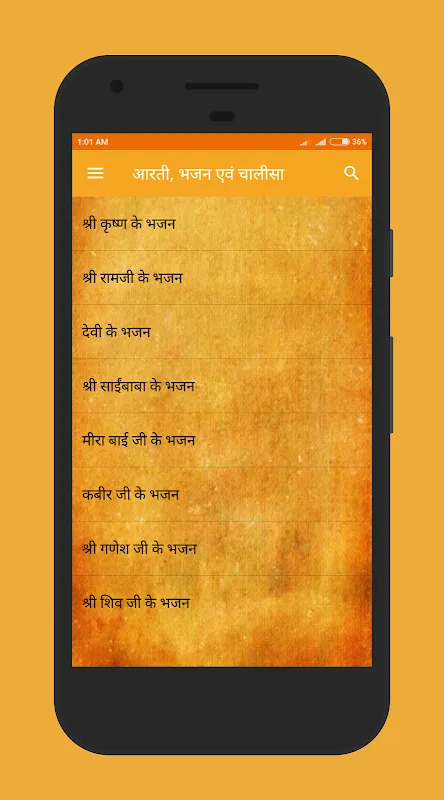 1:01 AM 36%
आरती, भजन एवं चालीसा
श्री कृष्ण के भजन
श्री रामजी के भजन
देवी के भजन
श्री साईंबाबा के भजन
मीरा बाई जी के भजन
कबीर जी के भजन
श्री गणेश जी के भजन
श्री शिव जी के भजन